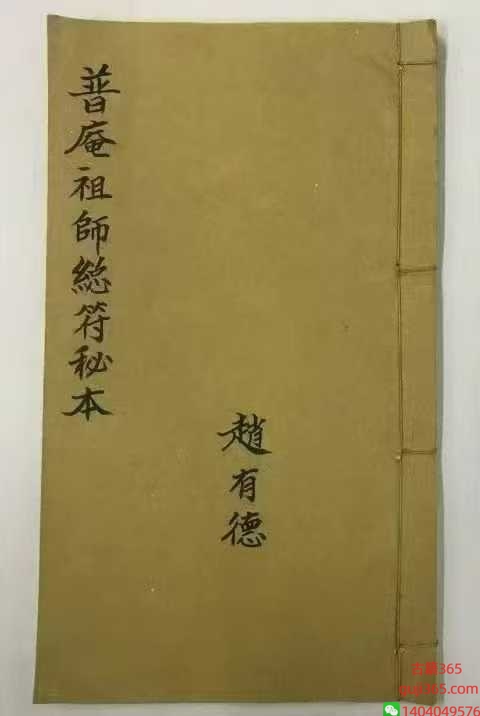 普庵祖師総符秘本
趙有德
古籍365
guji365.com
1404049576